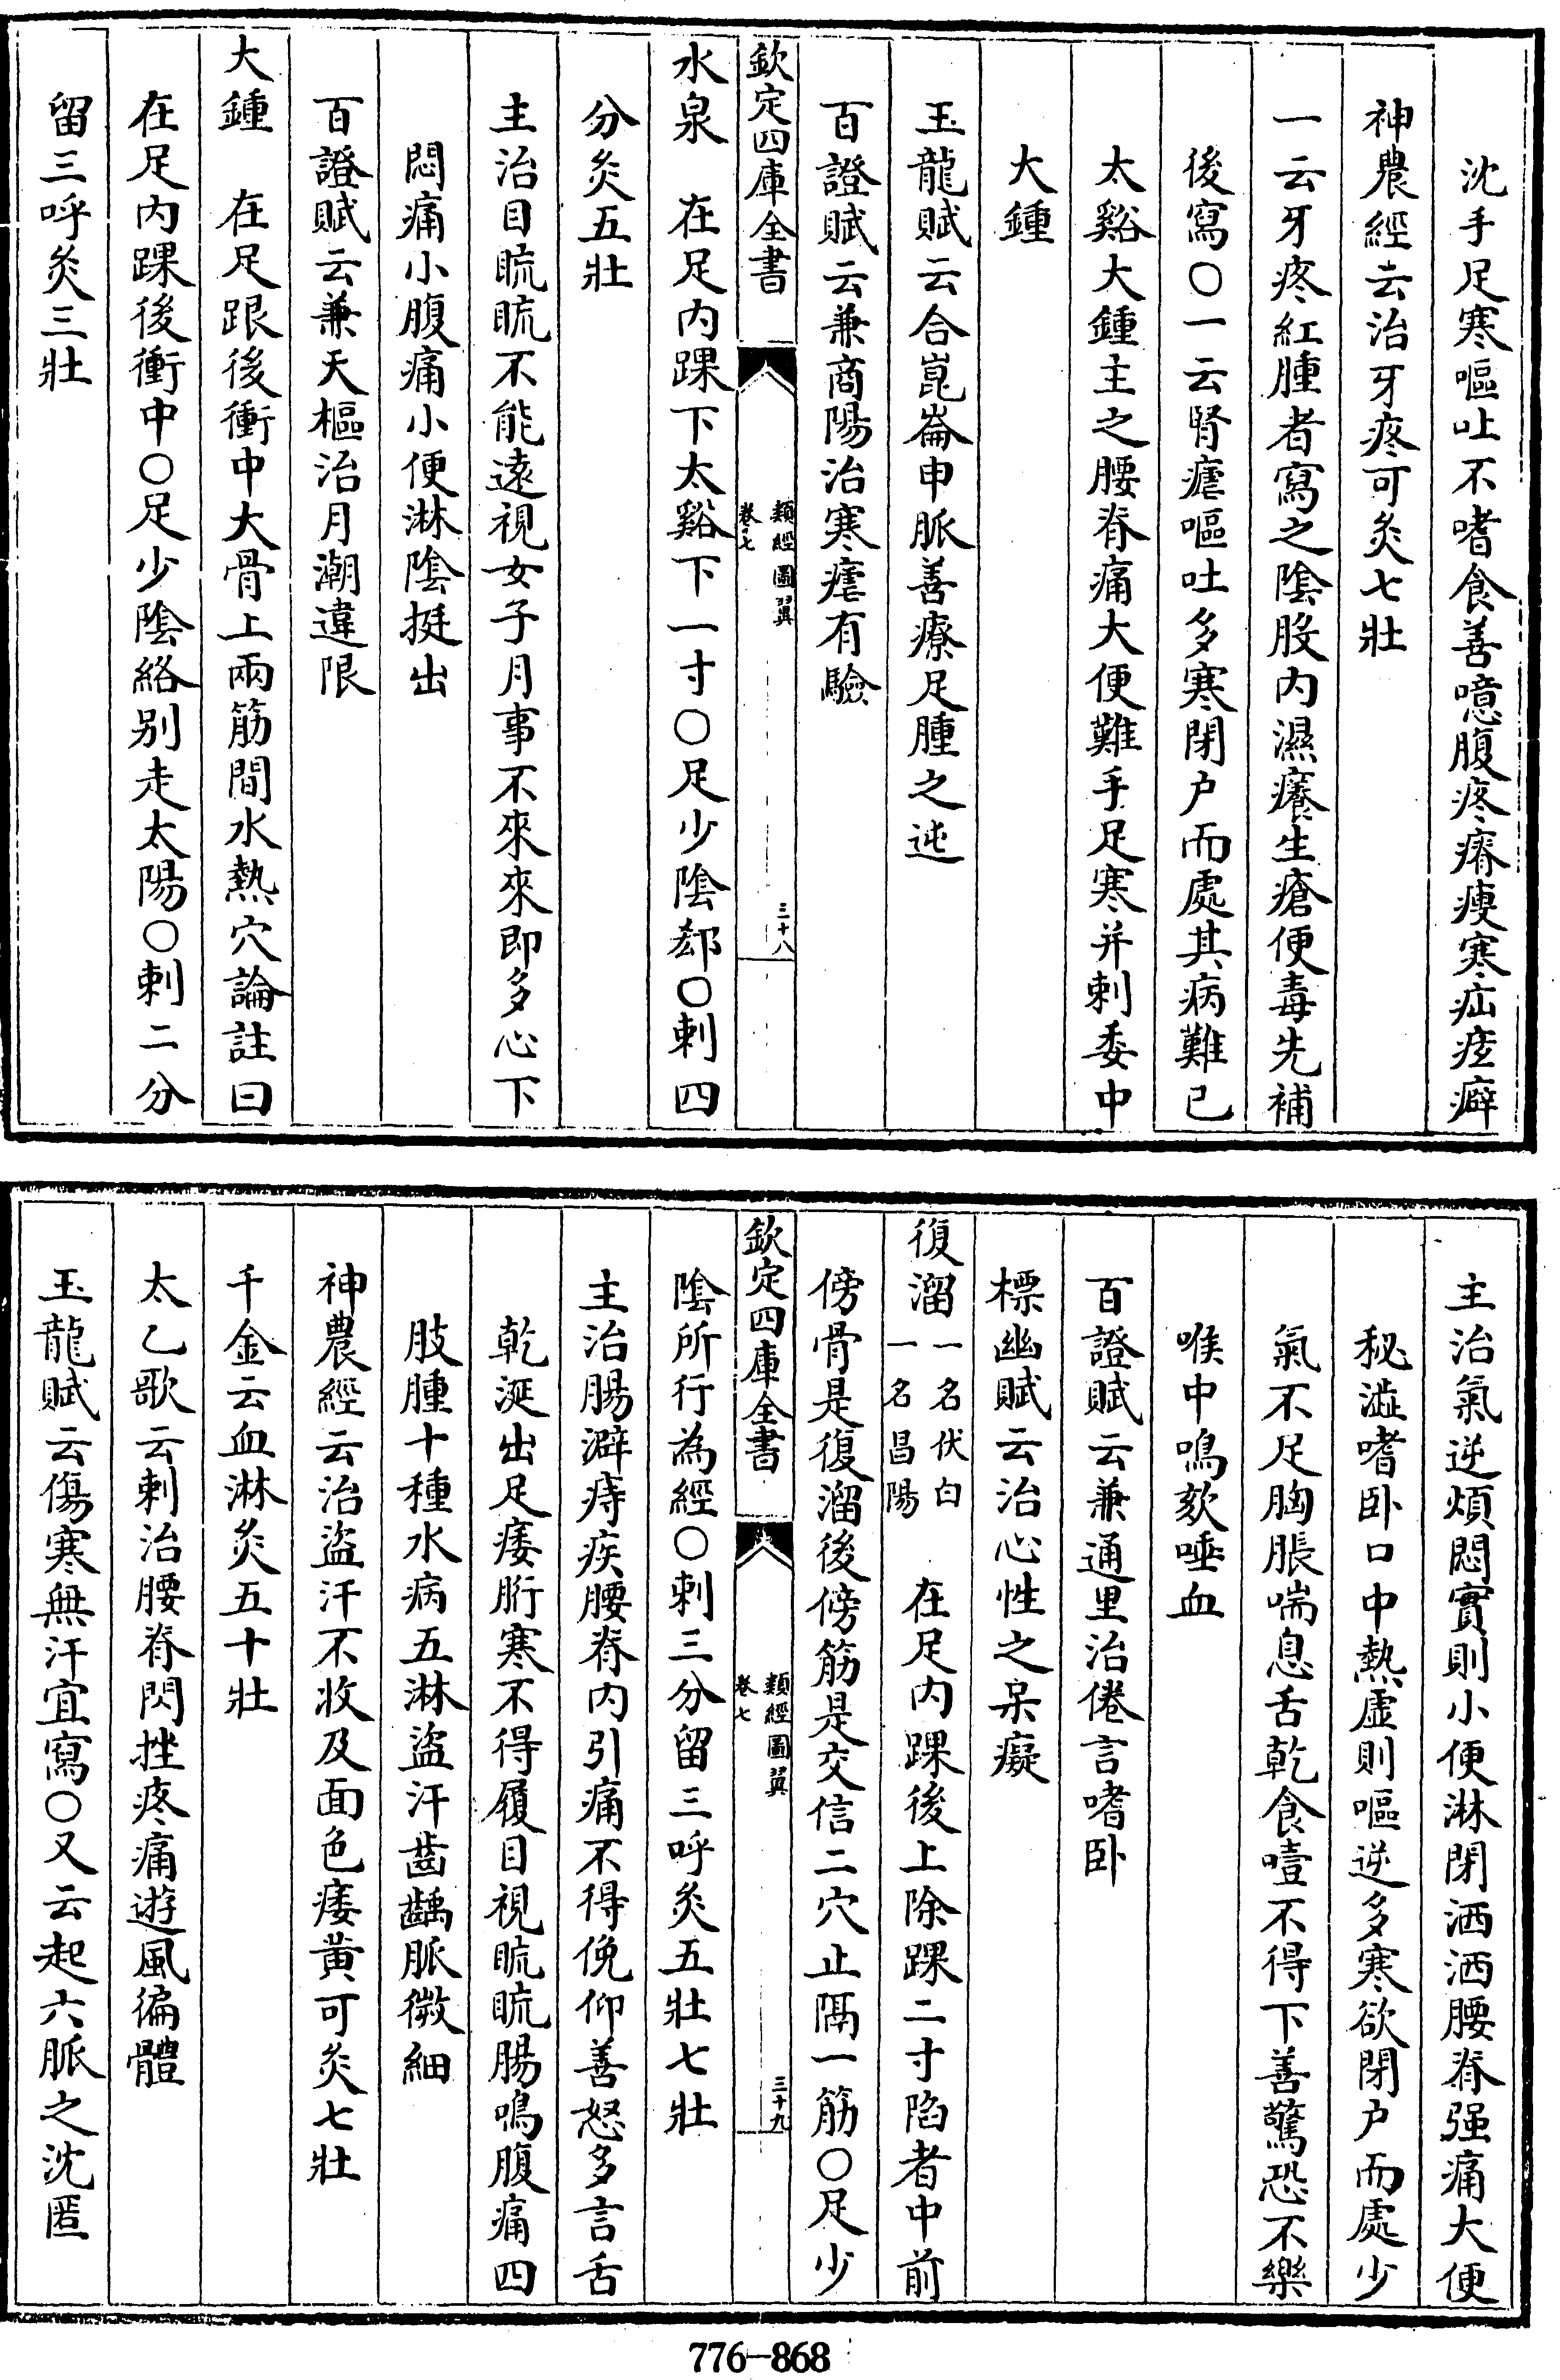 沈手足寒嘔吐不嗜食善噫腹疼瘠瘦寒疝痃癖
神農經云治牙疼可灸七壯
一云牙疼紅腫者寫之陰股内濕癢生瘡便毒先補
後寫○一云腎瘧嘔吐多寒閉户而處其病難已
太谿大鍾主之腰脊痛大便難手足寒并刺委中
大鍾
玉龍賦云合崑崙申脈善療足腫之迍
百證賦云兼商陽治寒瘧有驗
欽定四庫全書
類經圖翼
卷七
三十八
水泉 在足内踝下太谿下一寸○足少陰郄○刺四
分灸五壯
主治目䀮䀮不能遠視女子月事不來來即多心下
悶痛小腹痛小便淋陰挺出
百證賦云兼天樞治月潮違限
大鍾 在足跟後衝中大骨上兩筋間水熱穴論註曰
在足内踝後衝中○足少陰絡别走太陽○刺二分
留三呼灸三壯
主治氣逆煩悶實則小便淋閉洒洒腰脊强痛大便
秘澁嗜卧口中熱虛則嘔逆多寒欲閉户而處少
氣不足胸脹喘息舌乾食噎不得下善驚恐不樂
喉中鳴欬唾血
百證賦云兼通里治倦言嗜卧
標幽賦云治心性之呆癡
復溜一名伏白一名昌陽 在足内踝後上除踝二寸陷者中前
傍骨是復溜後傍筋是交信二穴止隔一筋○足少
欽定四庫全書
類經圖翼
卷七
三十九
陰所行為經○刺三分留三呼灸五壯七壯
主治腸澼痔疾腰脊内引痛不得俛仰善怒多言舌
乾涎出足痿胻寒不得履目視䀮䀮腸鳴腹痛四
肢腫十種水病五淋盜汗齒齲脈微細
神農經云治盜汗不收及面色痿黄可灸七壯
千金云血淋灸五十壯
太乙歌云刺治腰脊閃挫疼痛遊風徧體
玉龍賦云傷寒無汗宜寫○又云起六脈之沈匿
776-868